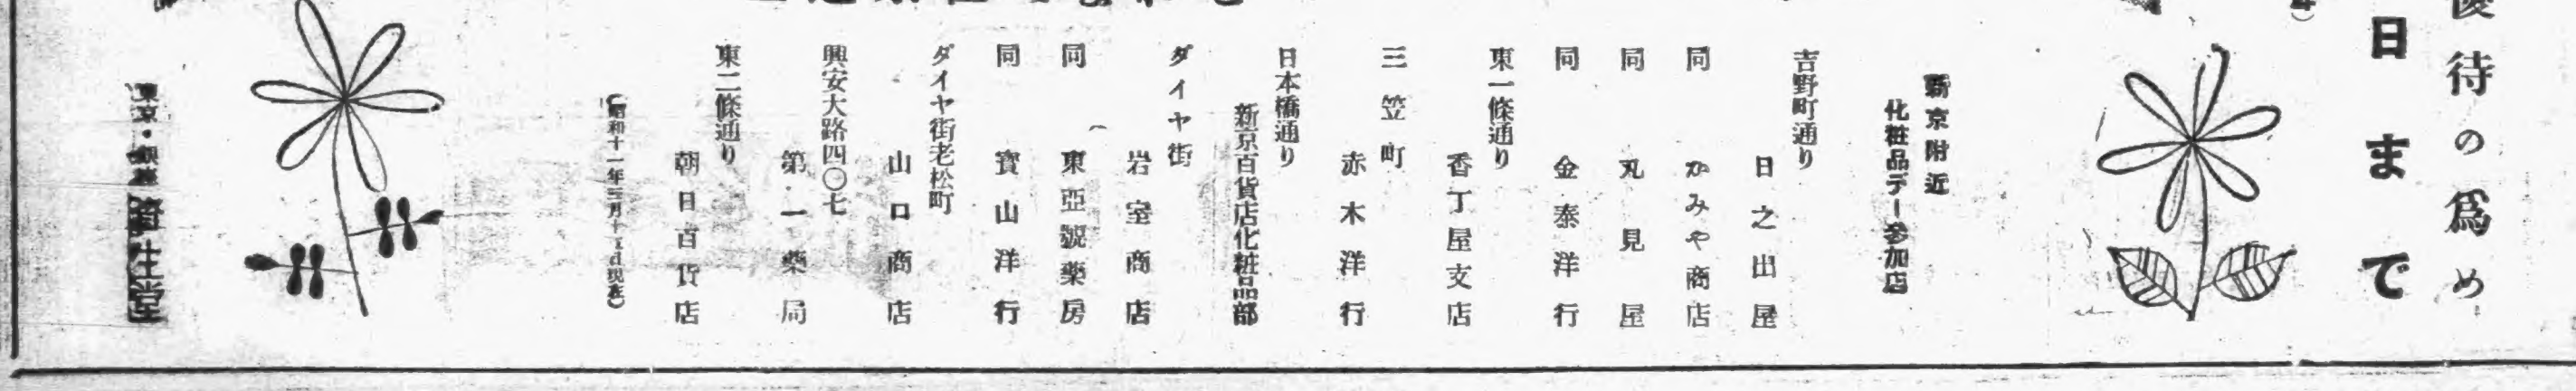 待の爲め
日まで
新京附近
化粧品デー参加店
吉野町通り
日之出屋
同 かみや商店
同 丸見屋
同 金泰洋行
東一條通り
香丁屋支店
三笠町
赤木洋行
日本橋通り
新京百貨店化粧品部
ダイヤ街
岩室商店
同 東亞號藥房
同 寶山洋行
ダイヤ街老松町
山口商店
興安大路四〇七
第一藥局
東二條通り
朝日百貨店
(昭和十一年三月十 日現在)
東京・銀座 資生堂